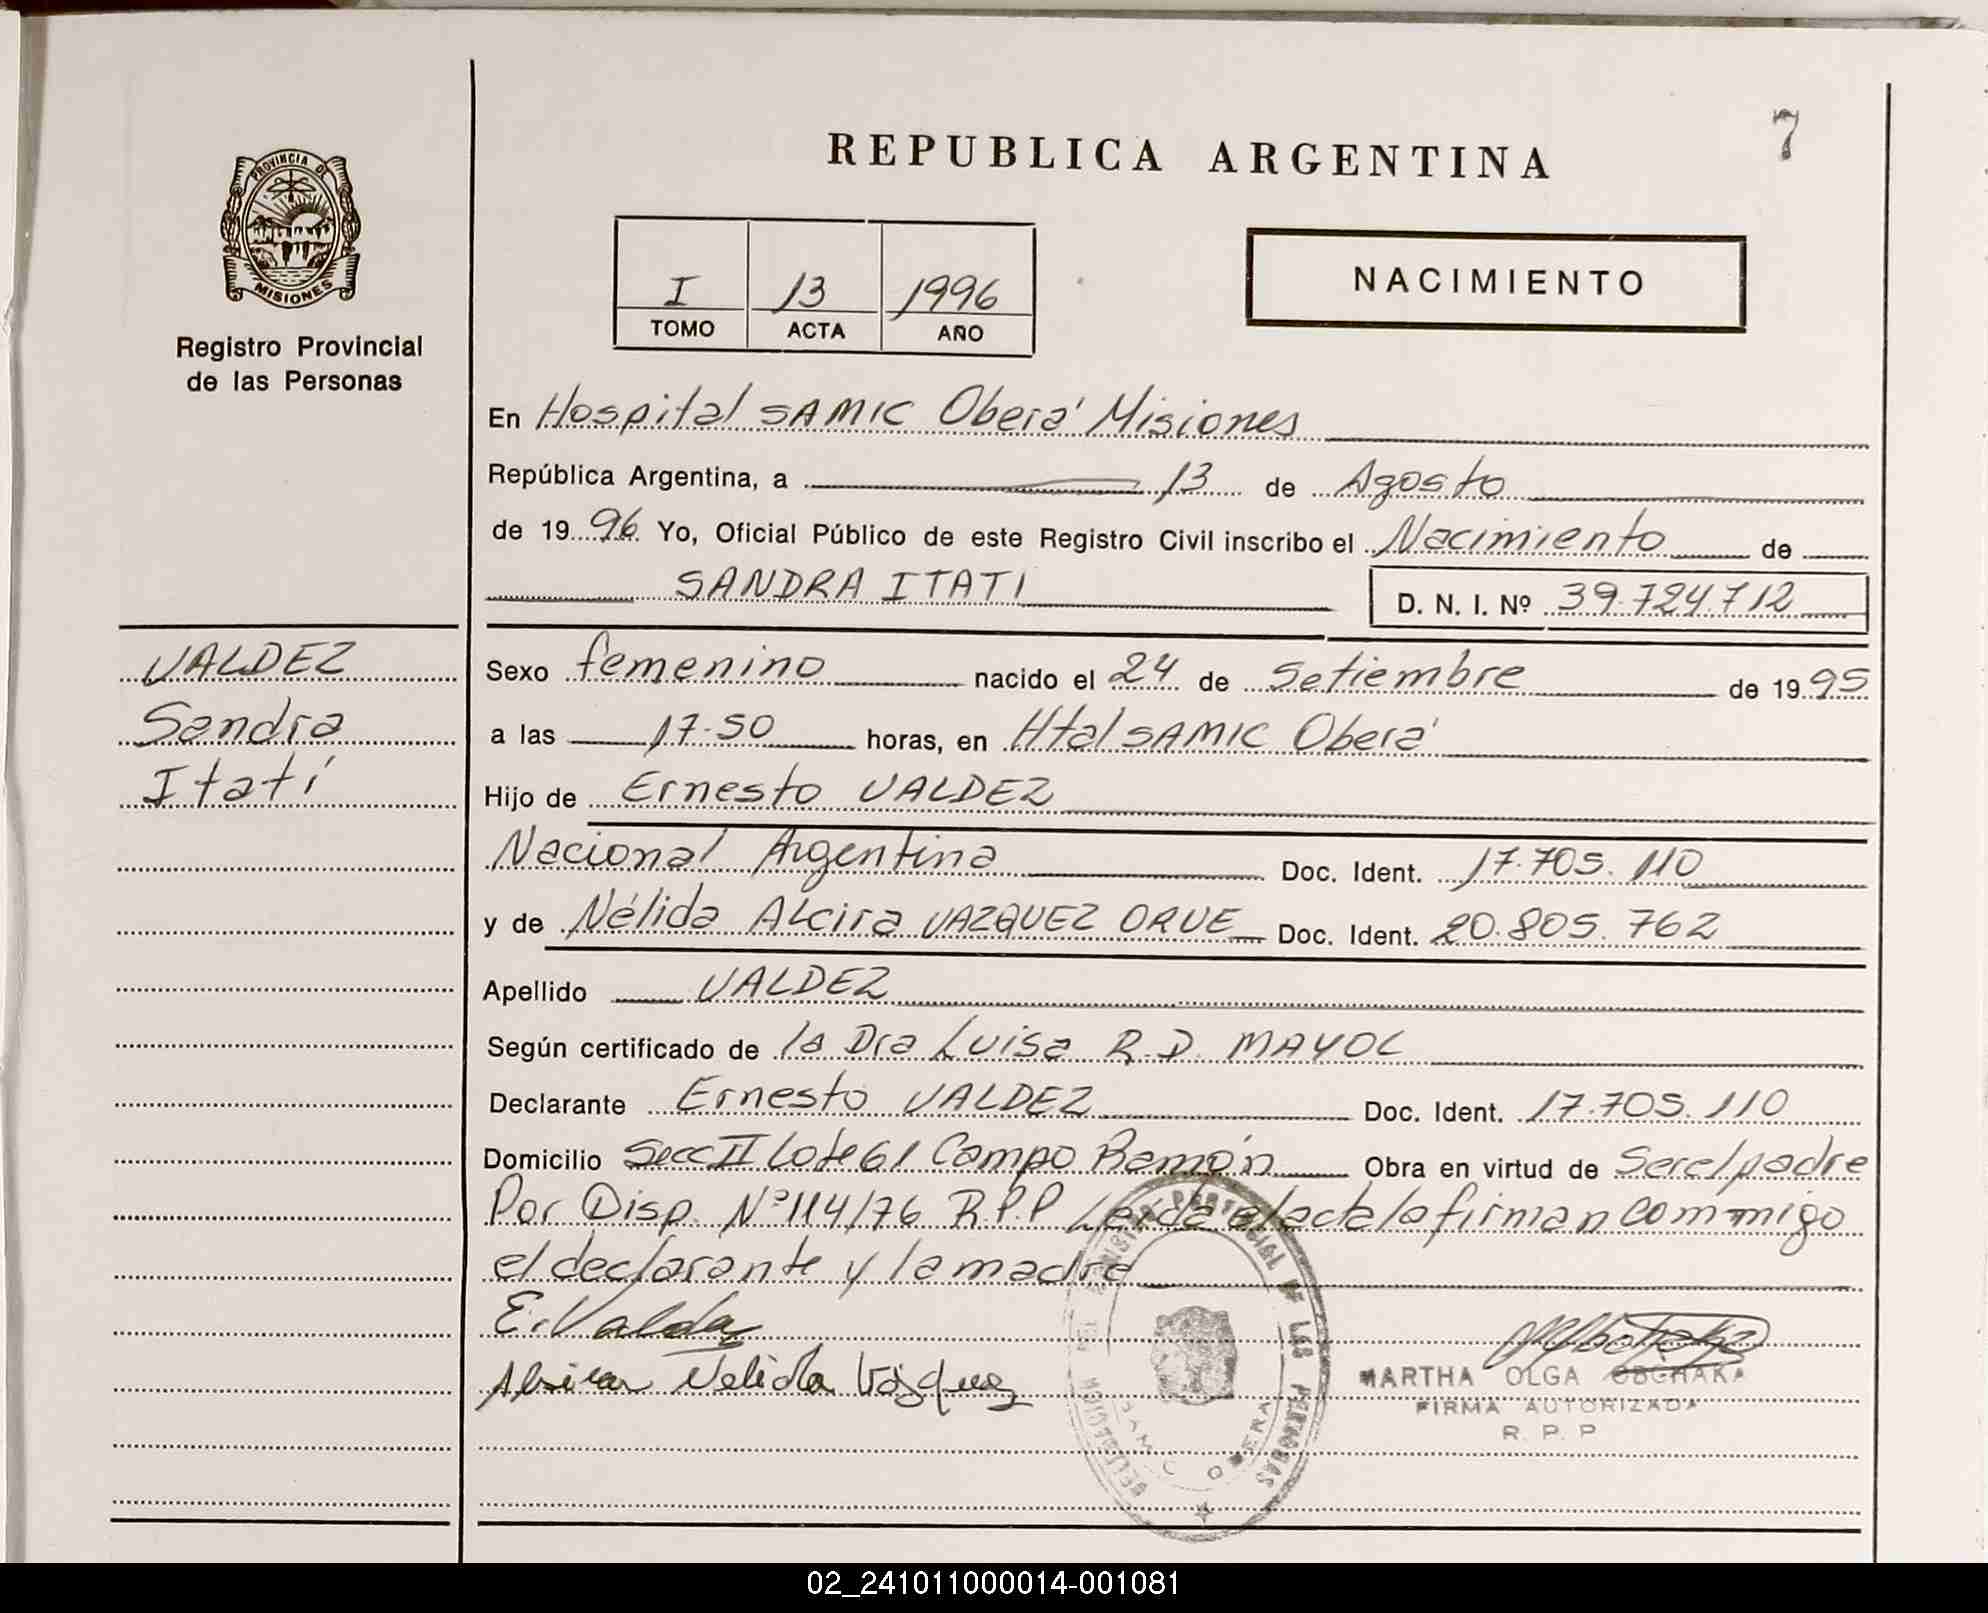 7
REPUBLICA ARGENTINA
PROVINCIA DE
MISIONES
Registro Provincial
de las Personas
I 13 1996
TOMO ACTA AÑO
NACIMIENTO
En Hospital SAMIC Oberá Misiones
República Argentina, a 13 de Agosto
de 1996 Yo, Oficial Público de este Registro Civil inscribo el Nacimiento de
SANDRA ITATI D. N. I. Nº 39.724.712
VALDEZ
Sandra
Itatí
Sexo femenino nacido el 24 de Setiembre de 1995
a las 17.50 horas, en Htal SAMIC Oberá
Hijo de Ernesto VALDEZ
Nacional Argentina Doc. Ident. 17.705.110
y de Nélida Alcira VAZQUEZ ORUE Doc. Ident. 20.805.762
Apellido VALDEZ
Según certificado de la Dra Luisa R.D. MAYOL
Declarante Ernesto VALDEZ Doc. Ident. 17.705.110
Domicilio Secc II Lote 61 Campo Ramón Obra en virtud de Ser el padre
Por Disp. Nº 114/76 R.P.P Leída el acta la firman commigo
el declarante y la madre
E. Valdez
Alsira Nelida Vásquez
MARTHA OLGA OBCHAKA
FIRMA AUTORIZADA
R. P. P
PROVINCIAL DE LAS PERSONAS
DELEGACION
SAMIC OBERA
02_241011000014-001081